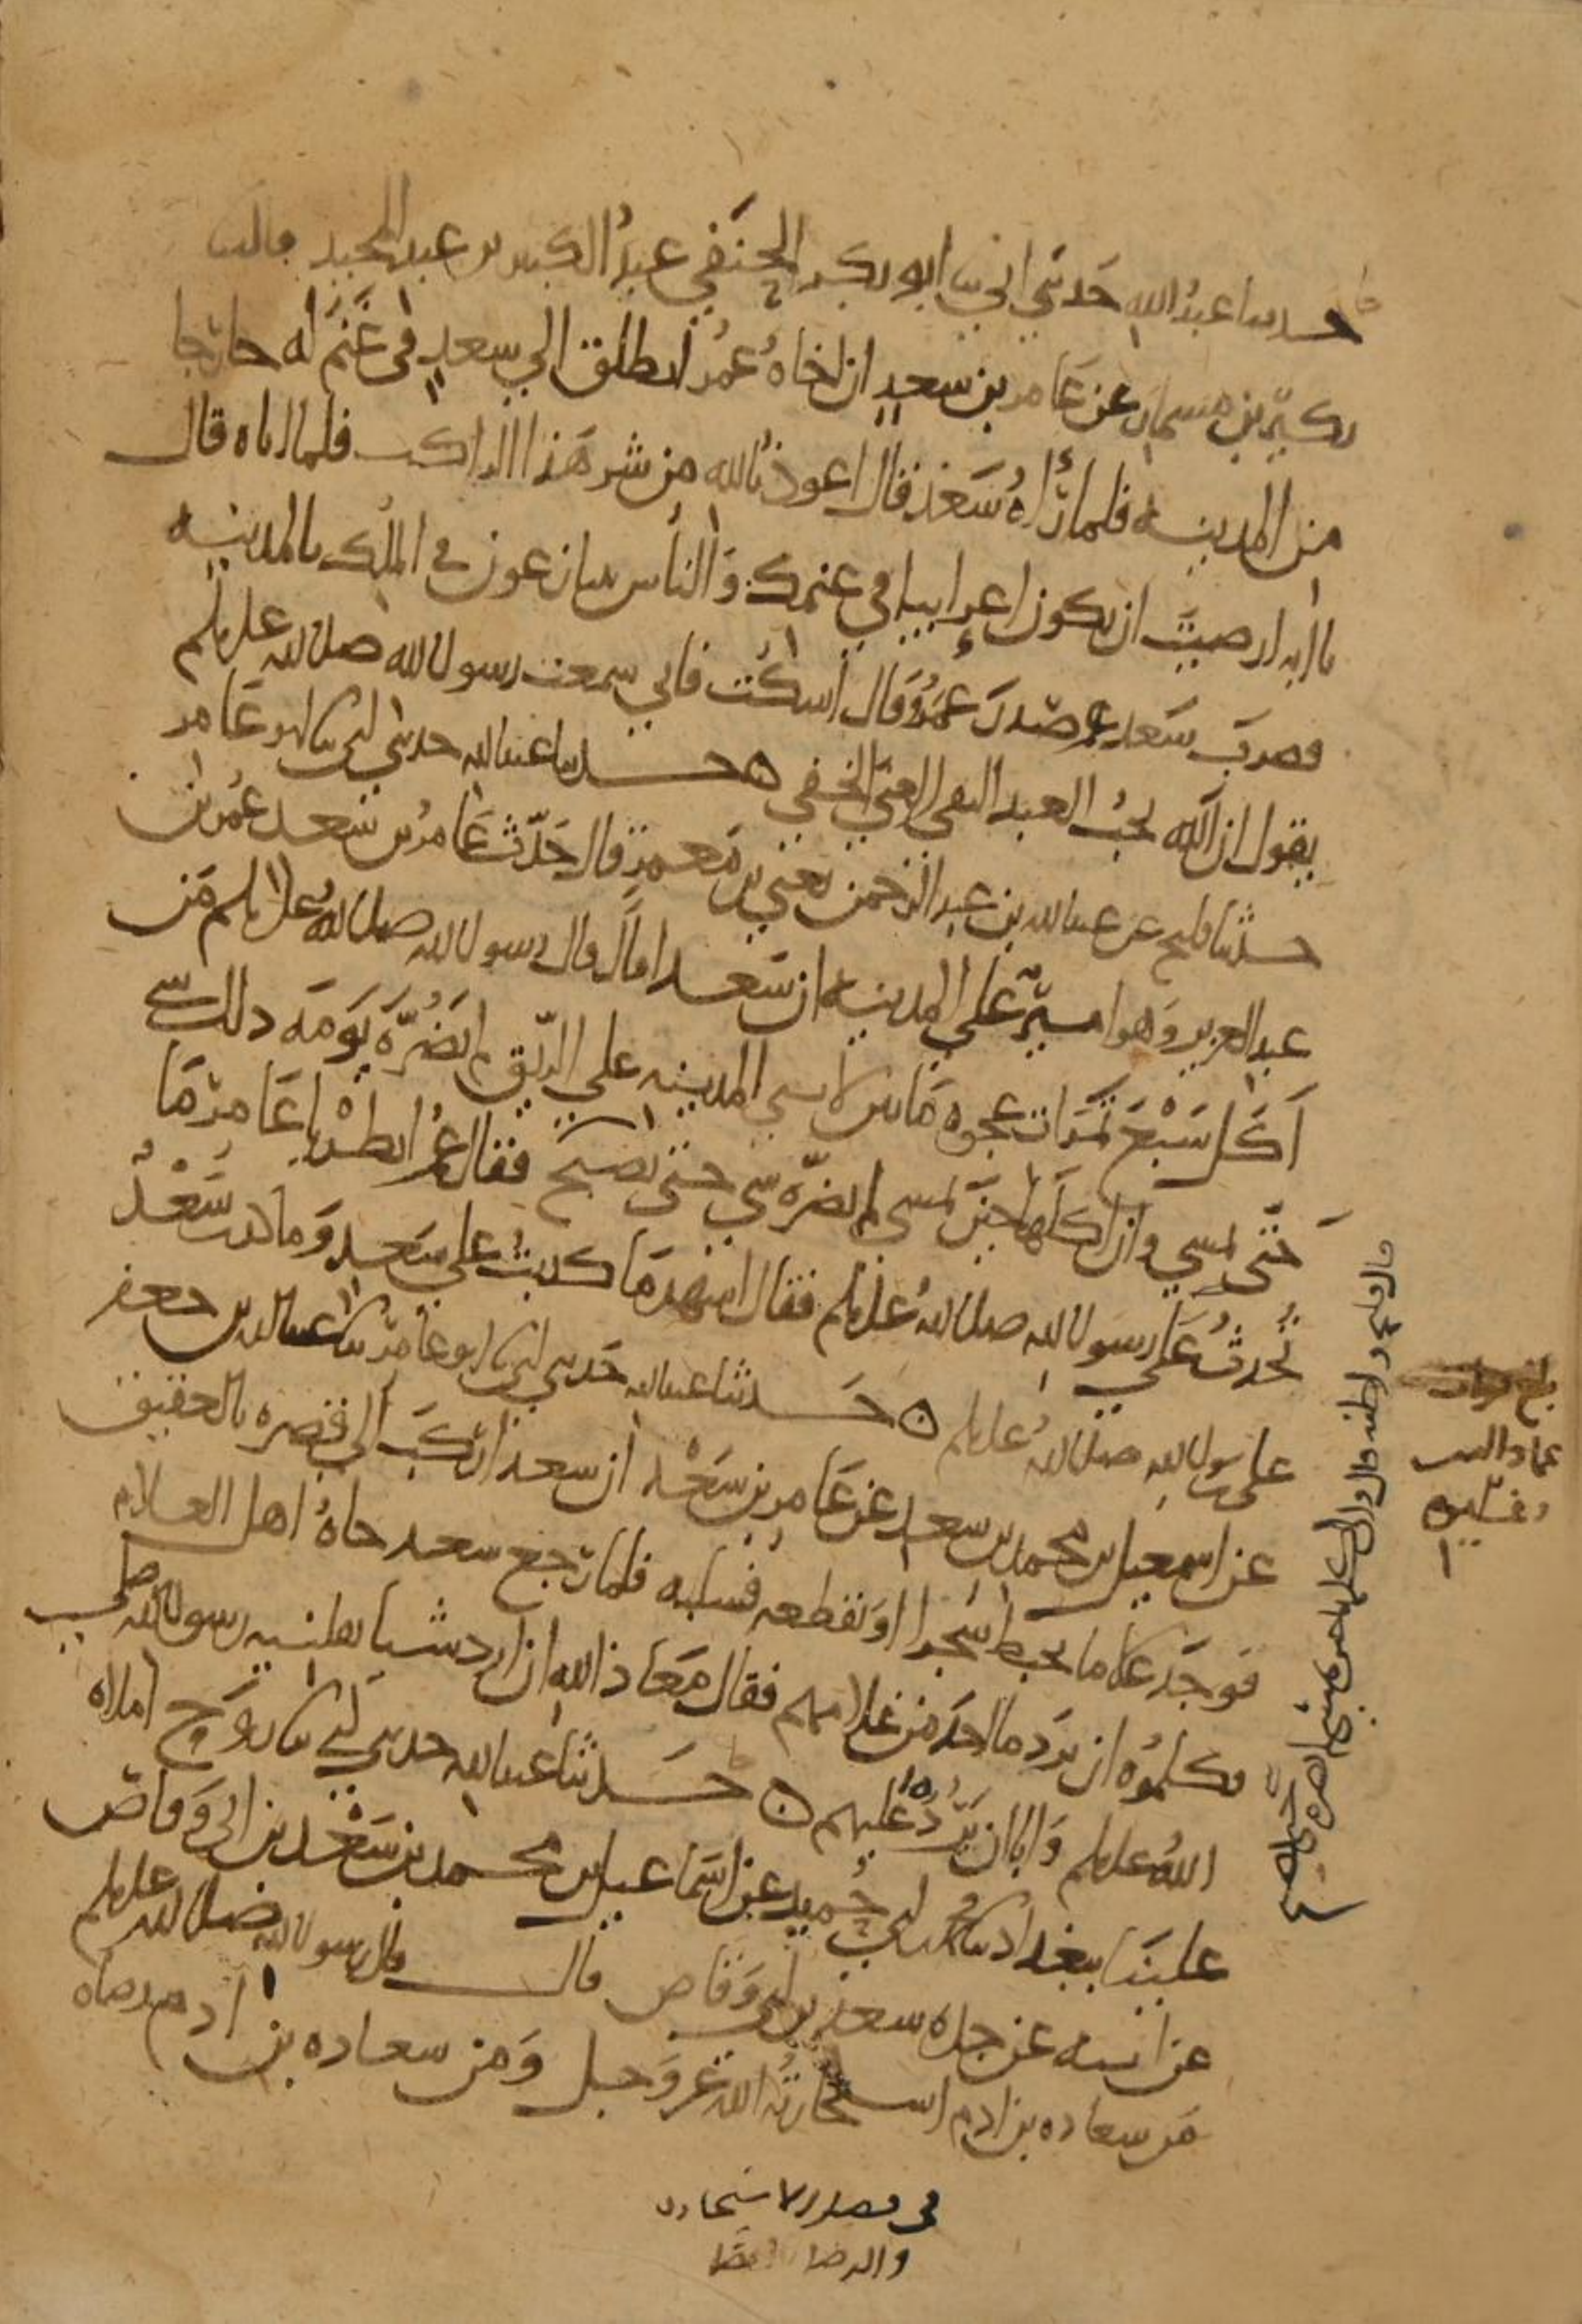 حدثنا عبد الله حدثني ابي ثنا ابو بكر الحنفي عبد الكبير بن عبد المجيد قال ثنا
بكير بن مسمار عن عامر بن سعد ان اخاه عمر انطلق الي سعد في غنم له خارجا
من المدينه فلما رآه سعد قال اعوذ بالله من شر هذا الراكب فلما اتاه قال
يا ابه ارضيت ان تكون اعرابيا في غنمك والناس يتنازعون في الملك بالمدينه
فضرب سعد صدر عمر وقال اسكت فاني سمعت رسول الله صلى الله عليه وسلم
يقول ان الله يحب العبد التقي الغني الخفي ه حدثنا عبد الله حدثني ابي ثنا ابو عامر
حدثنا فليح عن عبد الله بن عبد الرحمن يعني بن معمر قال حدث عامر بن سعد عمر بن
عبد العزيز وهو امير علي المدينه ان سعدا قال قال رسول الله صلى الله عليه وسلم من
اكل سبع تمرات عجوه ما بين لابتي المدينه علي الريق لم يضره يومه ذلك شي
حتى يمسي وان اكلها حين يمسي لم يضره شي حتى يصبح فقال عمر انظر يا عامر ما
تحدث عن رسول الله صلى الله عليه وسلم فقال اشهد ما كذبت علي سعد وما كذب سعد
على رسول الله صلى الله عليه وسلم ه حدثنا عبد الله حدثني ابي ثنا ابو عامر ثنا عبد الله بن جعفر
عن اسمعيل بن محمد بن سعد عن عامر بن سعد ان سعدا ركب الي قصره بالعقيق
فوجد غلاما يخبط شجرا او يقطعه فسلبه فلما رجع سعد جاه اهل الغلام
فكلموه ان يرد ما اخذ من غلامهم فقال معاذ الله ان ارد شيا نفلنيه رسول الله صلى
الله عليه وسلم وابا ان يرد عليهم ه حدثنا عبد الله حدثني ابي ثنا روح املاه
علينا ببغداد ثنا محمد بن ابي حميد عن اسماعيل بن محمد بن سعد بن ابي وقاص
عن ابيه عن جده سعد بن ابي وقاص قال قال رسول الله صلى الله عليه وسلم
من سعاده بن ادم استخارته الله عز وجل ومن سعاده بن ادم رضاه
في فضل الاستخاره
والرضا بالقضا
قال فليح واظنه قال وان اكلها حين يمسي لم يضره شي حتى يصبح
بلغ